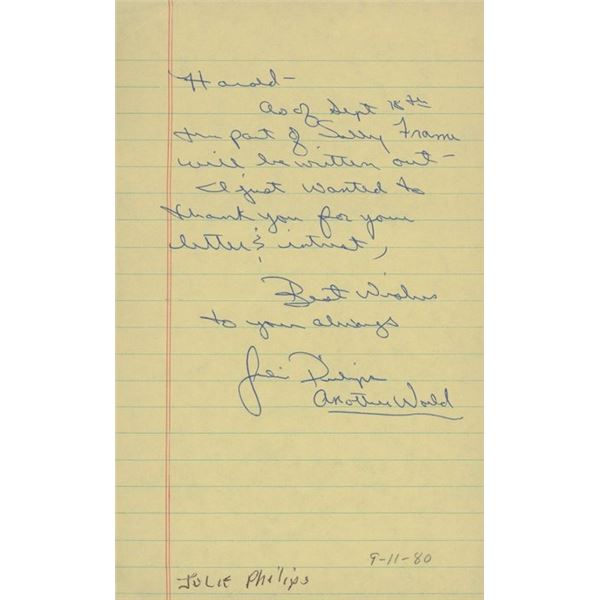 Harold-
As of Sept 18th
the part of Sally Frame
will be written out-
I just wanted to
thank you for your
letter & intrest,
Best Wishes
to you always
Julie Philips
Another World
9-11-80
JULIE Philips